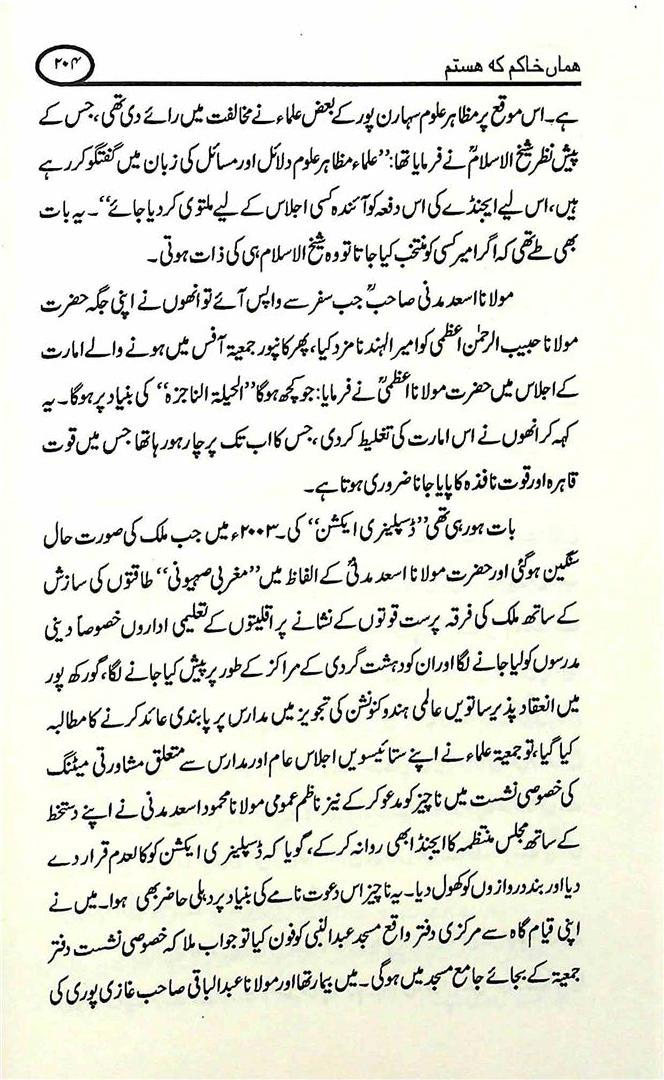 ھماں خاکم کہ ھستم
۲۰۴
ہے۔ اس موقع پر مظاہر علوم سہارن پور کے بعض علماء نے مخالفت میں رائے دی تھی، جس کے
پیش نظر شیخ الاسلامؒ نے فرمایا تھا: ’’علماء مظاہر علوم دلائل اور مسائل کی زبان میں گفتگو کر رہے
ہیں، اس لیے ایجنڈے کی اس دفعہ کو آئندہ کسی اجلاس کے لیے ملتوی کر دیا جائے‘‘۔ یہ بات
بھی طے تھی کہ اگر امیر کسی کو منتخب کیا جاتا تو وہ شیخ الاسلام ہی کی ذات ہوتی۔
مولانا اسعد مدنی صاحبؒ جب سفر سے واپس آئے تو انھوں نے اپنی جگہ حضرت
مولانا حبیب الرحمٰن اعظمی کو امیر الہند نامزد کیا، پھر کانپور جمعیۃ آفس میں ہونے والے امارت
کے اجلاس میں حضرت مولانا اعظمیؒ نے فرمایا: جو کچھ ہوگا ’’الحیلۃ الناجزہ‘‘ کی بنیاد پر ہوگا۔ یہ
کہہ کر انھوں نے اس امارت کی تغلیط کر دی، جس کا اب تک پرچار ہو رہا تھا جس میں قوت
قاہرہ اور قوت نافذہ کا پایا جانا ضروری ہوتا ہے۔
بات ہو رہی تھی ’’ڈسپلینری ایکشن‘‘ کی۔ ۲۰۰۳ء میں جب ملک کی صورت حال
سنگین ہوگئی اور حضرت مولانا اسعد مدنیؒ کے الفاظ میں ’’مغربی صہیونی‘‘ طاقتوں کی سازش
کے ساتھ ملک کی فرقہ پرست قوتوں کے نشانے پر اقلیتوں کے تعلیمی اداروں خصوصاً دینی
مدرسوں کو لیا جانے لگا اور ان کو دہشت گردی کے مراکز کے طور پر پیش کیا جانے لگا، گورکھ پور
میں انعقاد پذیر ساتویں عالمی ہندو کنونشن کی تجویز میں مدارس پر پابندی عائد کرنے کا مطالبہ
کیا گیا، تو جمعیۃ علماء نے اپنے ستائیسویں اجلاس عام اور مدارس سے متعلق مشاورتی میٹنگ
کی خصوصی نشست میں ناچیز کو مدعو کر کے نیز ناظم عمومی مولانا محمود اسعد مدنی نے اپنے دستخط
کے ساتھ مجلس منتظمہ کا ایجنڈا بھی روانہ کر کے، گویا کہ ڈسپلینری ایکشن کو کالعدم قرار دے
دیا اور بند دروازوں کو کھول دیا۔ یہ ناچیز اس دعوت نامے کی بنیاد پر دہلی حاضر بھی ہوا۔ میں نے
اپنی قیام گاہ سے مرکزی دفتر واقع مسجد عبدالنبی کو فون کیا تو جواب ملا کہ خصوصی نشست دفتر
جمعیۃ کے بجائے جامع مسجد میں ہوگی۔ میں بیمار تھا اور مولانا عبدالباقی صاحب غازی پوری کی